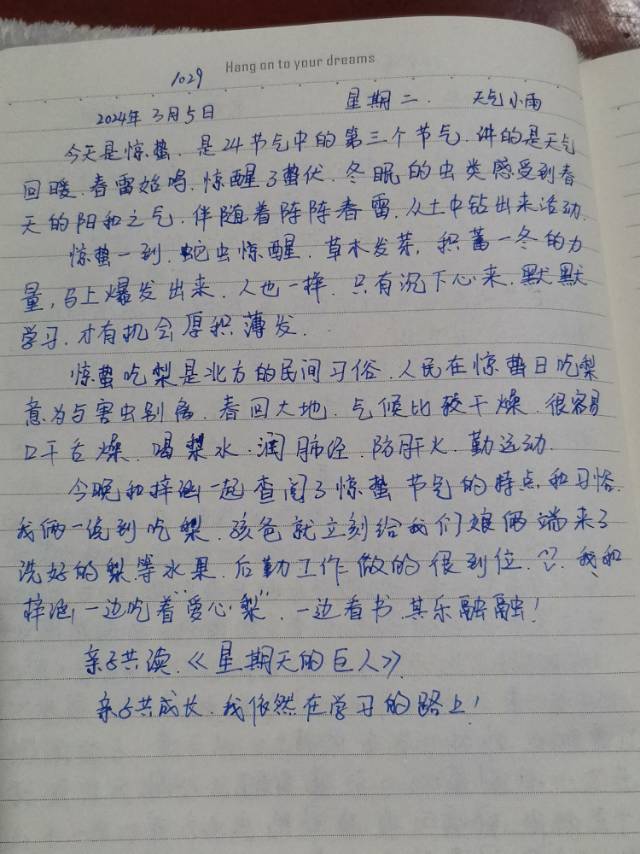 Hang on to your dreams
1029
2024年3月5日 星期二. 天气小雨
今天是惊蛰.是24节气中的第三个节气.讲的是天气
回暖.春雷始鸣.惊醒了蛰伏.冬眠的虫类感受到春
天的阳和之气.伴随着阵阵春雷.从土中钻出来活动.
惊蛰一到.蛇虫惊醒.草木发芽,积蓄一冬的力
量,马上爆发出来.人也一样.只有沉下心来.默默
学习.才有机会厚积薄发.
惊蛰吃梨是北方的民间习俗.人民在惊蛰日吃梨
意为与害虫别离.春回大地.气候比较干燥.很容易
口干舌燥.喝梨水.润肺经.防肝火.勤运动.
今晚和梓涵一起查阅了惊蛰节气的特点和习俗.
我俩一读到吃梨.孩爸就立刻给我们娘俩端来了
洗好的梨等水果.后勤工作做的很到位.我和
梓涵一边吃着“爱心梨”.一边看书.其乐融融!
亲子共读.《星期天的巨人》.
亲子共成长.我依然在学习的路上!